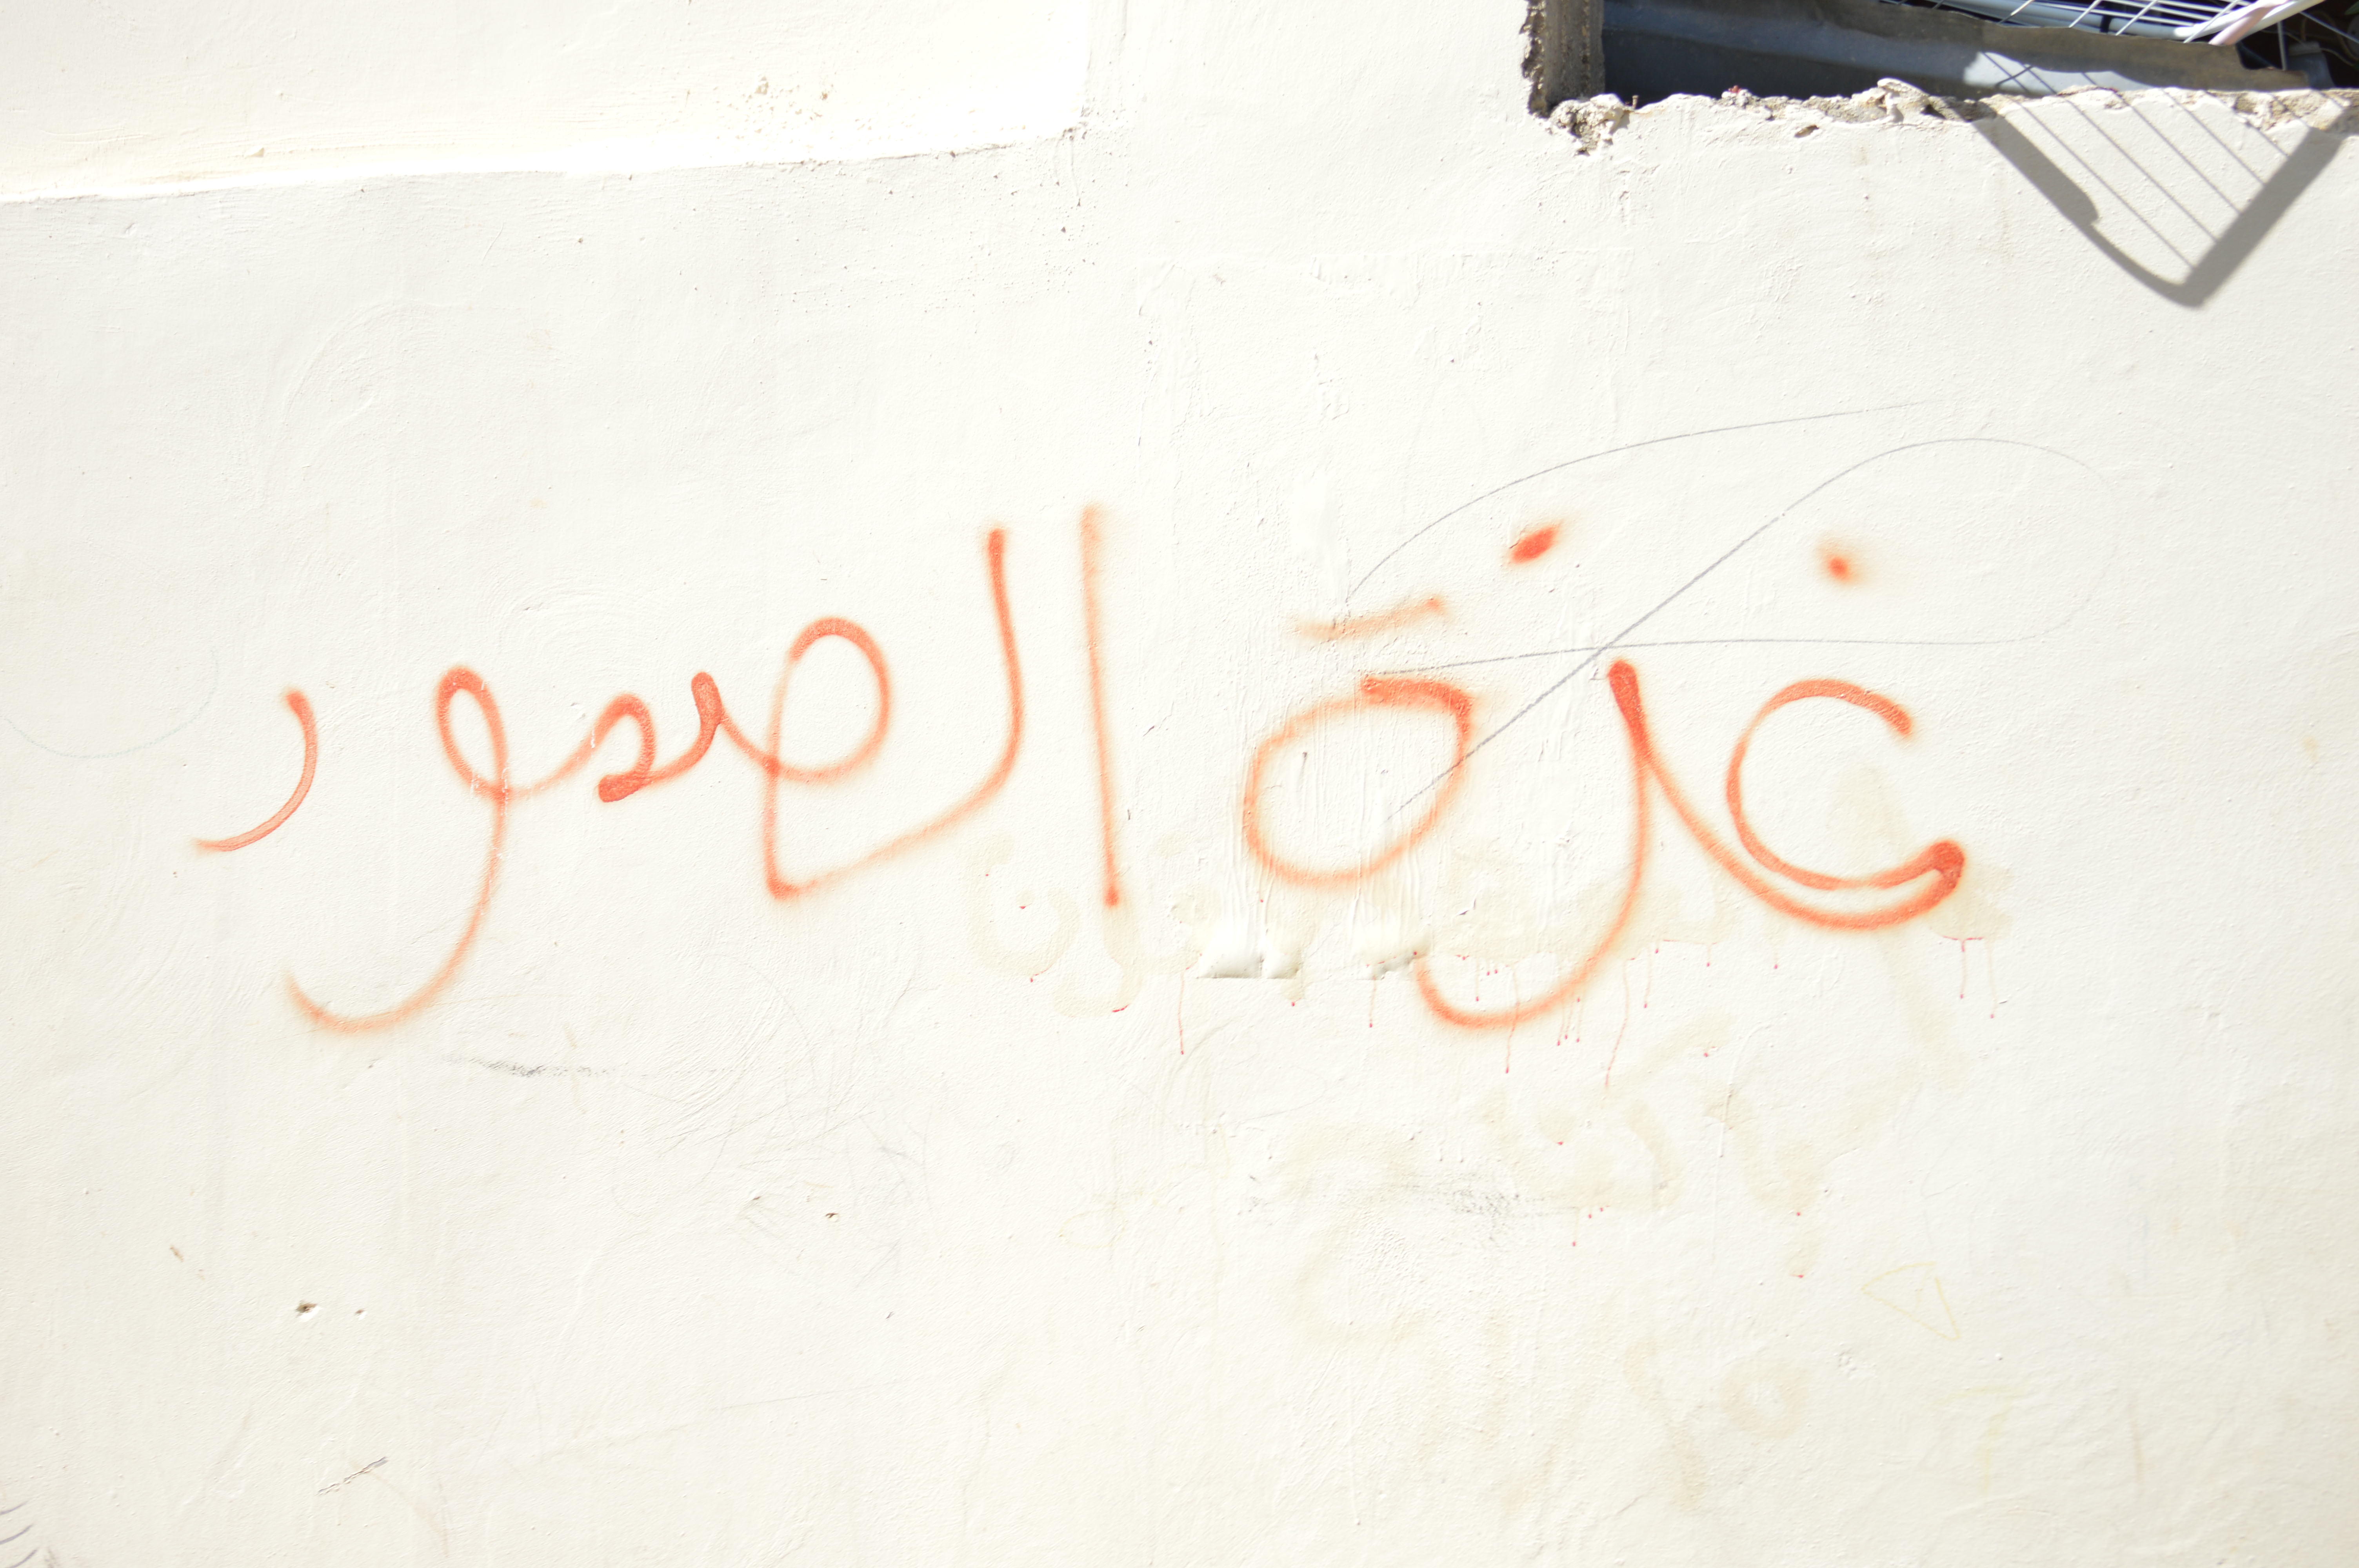 غزة الصمود